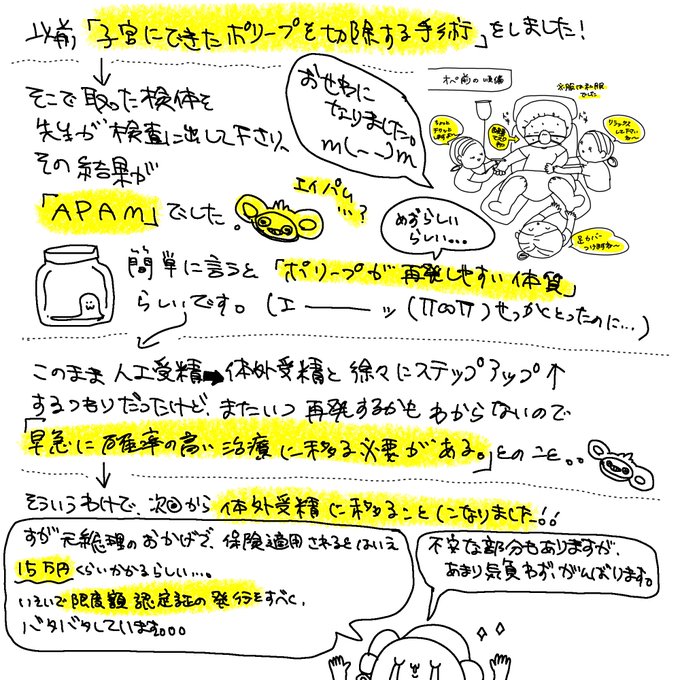 以前「子宮にできたポリープを切除する手術」をしました!
そこで取った検体を
先生が検査に出して下さり、
その結果が
「APAM」でした。
エイパム
…?
おせわに
なりました。
m(__)m
オペ前の準備
※服は私服
でした
ちょっと
チクッと
しますよ〜
リラックス
して下さい
ね〜
足カバー
つけますね〜
めずらしい
らしい...
簡単に言うと「ポリープが再発しやすい体質」
らしいです。(エーッ(TT∞TT)せっかくとったのに…)
このまま人工受精➡体外受精と徐々にステップアップ↑
するつもりだったけど、またいつ再発するかもわからないので
「早急に確率の高い治療に移る必要がある。」とのこと。。
そういうわけで、次回から体外受精に移ることになりました!!
すが元総理のおかげで、保険適用されるとはいえ
15万円くらいかかるらしい...。
いそいで限度額認定証の発行をすべく、
バタバタしています。。。
不安な部分もありますが、
あまり気負わず、がんばります。